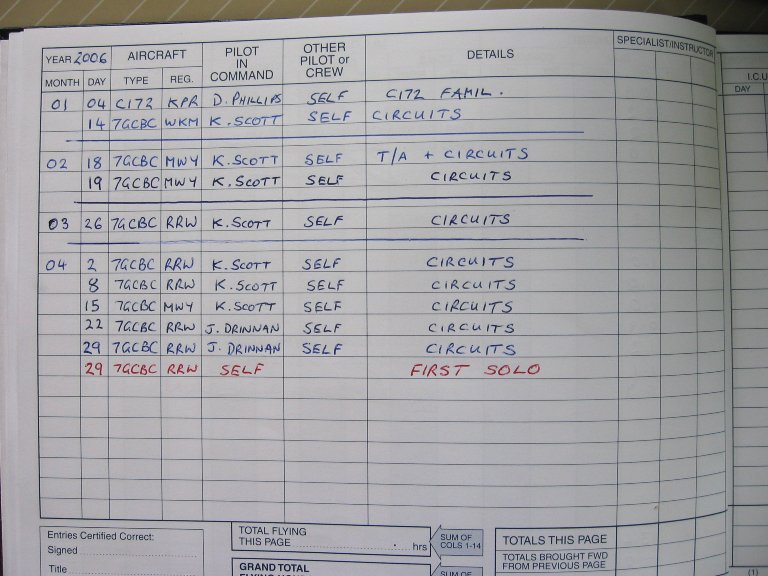 YEAR 2006 AIRCRAFT PILOT IN COMMAND OTHER PILOT or CREW DETAILS SPECIALIST/INSTRUCTOR
MONTH DAY TYPE REG. I.C.U
DAY
01 04 C172 KPR D. PHILLIPS SELF C172 FAMIL.
14 7GCBC WKM K. SCOTT SELF CIRCUITS
02 18 7GCBC MWY K. SCOTT SELF T/A + CIRCUITS
19 7GCBC MWY K. SCOTT SELF CIRCUITS
03 26 7GCBC RRW K. SCOTT SELF CIRCUITS
04 2 7GCBC RRW K. SCOTT SELF CIRCUITS
8 7GCBC RRW K. SCOTT SELF CIRCUITS
15 7GCBC MWY K. SCOTT SELF CIRCUITS
22 7GCBC RRW J. DRINNAN SELF CIRCUITS
29 7GCBC RRW J. DRINNAN SELF CIRCUITS
29 7GCBC RRW SELF FIRST SOLO
Entries Certified Correct:
Signed
Title
TOTAL FLYING
THIS PAGE hrs
SUM OF
COLS 1-14
GRAND TOTAL
SUM OF
TOTALS THIS PAGE
TOTALS BROUGHT FWD
FROM PREVIOUS PAGE
(1)